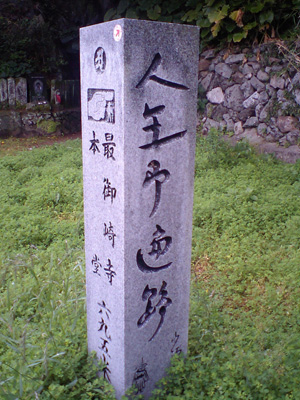 人生即遍路
最御崎寺
本堂
六九五米